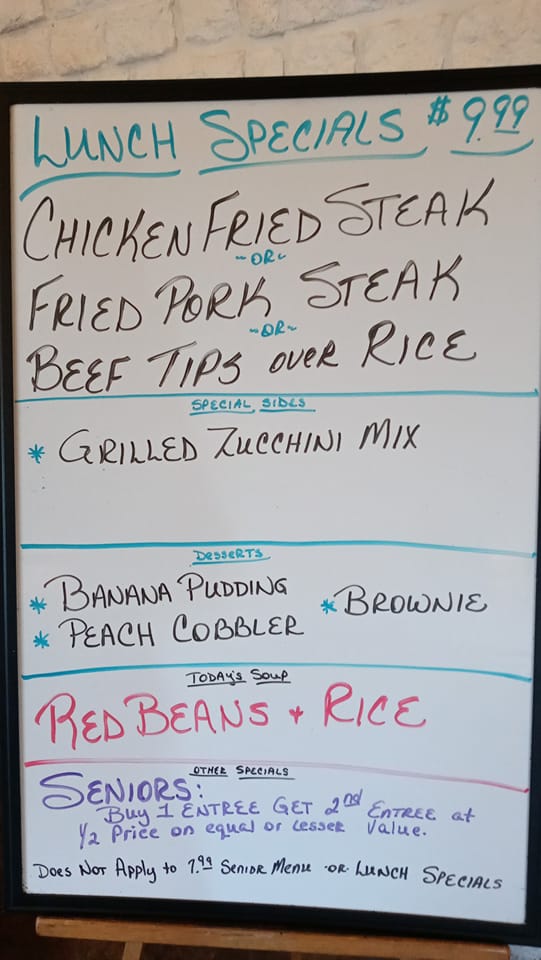 LUNCH SPECIALS $9.99
CHICKEN FRIED STEAK
~OR~
FRIED PORK STEAK
~OR~
BEEF TIPS OVER RICE
SPECIAL SIDES
* GRILLED ZUCCHINI MIX
DESSERTS
* BANANA PUDDING * BROWNIE
* PEACH COBBLER
TODAY'S SOUP
RED BEANS + RICE
OTHER SPECIALS
SENIORS:
Buy 1 ENTREE GET 2nd ENTREE at
1/2 Price on equal or Lesser Value.
Does Not Apply to 7.99 Senior Menu -OR- LUNCH SPECIALS